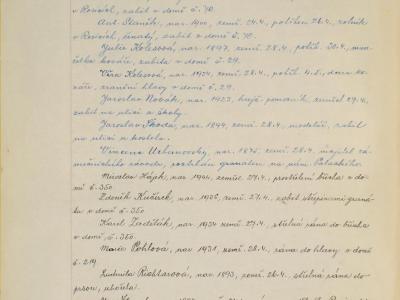 v Rovních, zabit v domě č. 70.
Ant. Staněk, nar. 1900, zemř. 27.4., pohřben 26.4., rolník
v Rovních, ženatý, zabit v domě č. 70.
Julie Kolesová, nar. 1897, zemř. 28.4., pohř. 30.4., man-
želka kováře, zabita v domě č. 29.
Věra Kolesová, nar. 1924, zemř. 28.4., pohř. 4.5., dcera ko-
váře, zranění hlavy v domě č. 29.
Jaroslav Novák, nar. 1923, pomocník, zemřel 27.4.,
zabit na ulici u školy.
Jaroslav Škoda, nar. 1899, zemř. 28.4., modelář, zabit
na ulici u kostela.
Vincenc Urbanovský, nar. 1875, zemř. 28.4., majitel zá-
mečnického závodu, granátem na nám. Palackého.
Miroslav Hájek, nar. 1904, zemř. 27.4., prostřelení břicha v do-
mě č. 350
Zdeněk Kučírek, nar. 1935, zemř. 27.4., zabit střepinami graná-
tu v domě č. 350
Karel Zedělek, nar. 1934 zemř. 27.4., střelná rána do břicha
v domě č. 350.
Marie Pohlová, nar. 1931, zemř. 28.4., rána do hlavy v domě
č. 219
Ludmila Richtarová, nar. 1893, zemř. 26.4., střelná rána do
prsou, učitelka.